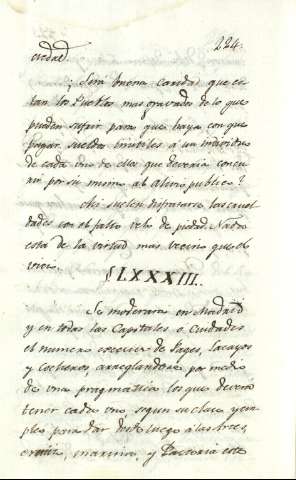 224.
ciedad.
¿Será buena caridad que es-
tan los Pueblos mas gravados de lo que
pueden sufrir para que haya con que
pagar sueldos inutiles á un
de cada uno de ellos que deveria concu-
rir por si mismo al alivio publico?
Asi suelen disfrazarse las cruel-
dades con el falso velo de piedad. Nada
está de la virtud mas vecino que el
vicio.
§ LXXXIII.
Se moderará en Madrid
y en todas las Capitales o Ciudades
el numero excesivo de Pages, lacayos
y Cocheros, arreglandose por medio
de una pragmatica los que deverá
tener cada uno, segun su clase y em-
pleo, para dar desde luego á las Artes,
marina, y Pastoria este